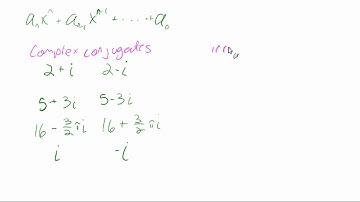 aₙxⁿ + aₙ₋₁xⁿ⁻¹ + ..... + a₀
Complex conjugates
2 + i 2 - i
5 + 3i 5 - 3i
16 - 3/2 πi 16 + 3/2 πi
i -i